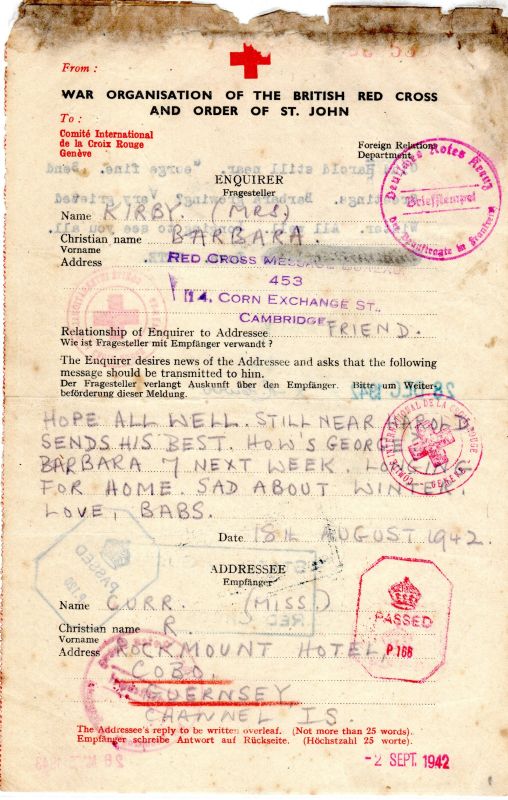 From :
WAR ORGANISATION OF THE BRITISH RED CROSS
AND ORDER OF ST. JOHN
To :
Comité International
de la Croix Rouge
Genève
Foreign Relations
Department
Deutsches Rotes Kreuz
Briefstempel
ENQUIRER
Fragesteller
Name KIRBY. (MRS)
Christian name BARBARA.
Vorname
Address RED CROSS MESSAGE BUREAU
453
14, CORN EXCHANGE ST.,
CAMBRIDGE
Relationship of Enquirer to Addressee FRIEND.
Wie ist Fragesteller mit Empfänger verwandt ?
The Enquirer desires news of the Addressee and asks that the following
message should be transmitted to him.
Der Fragesteller verlangt Auskunft über den Empfänger. Bitte um Weiter-
beförderung dieser Meldung.
HOPE ALL WELL. STILL NEAR HAROLD.
SENDS HIS BEST. HOW'S GEORGE
BARBARA 7 NEXT WEEK. LONGING
FOR HOME. SAD ABOUT WINTER.
LOVE, BABS.
Date 18th AUGUST 1942.
ADDRESSEE
Empfänger
Name CURR. (MISS.)
Christian name R.
Vorname
Address ROCKMOUNT HOTEL,
COBO.
GUERNSEY
CHANNEL IS.
PASSED
P 166
The Addressee's reply to be written overleaf. (Not more than 25 words).
Empfänger schreibe Antwort auf Rückseite. (Höchstzahl 25 worte).
-2 SEPT. 1942